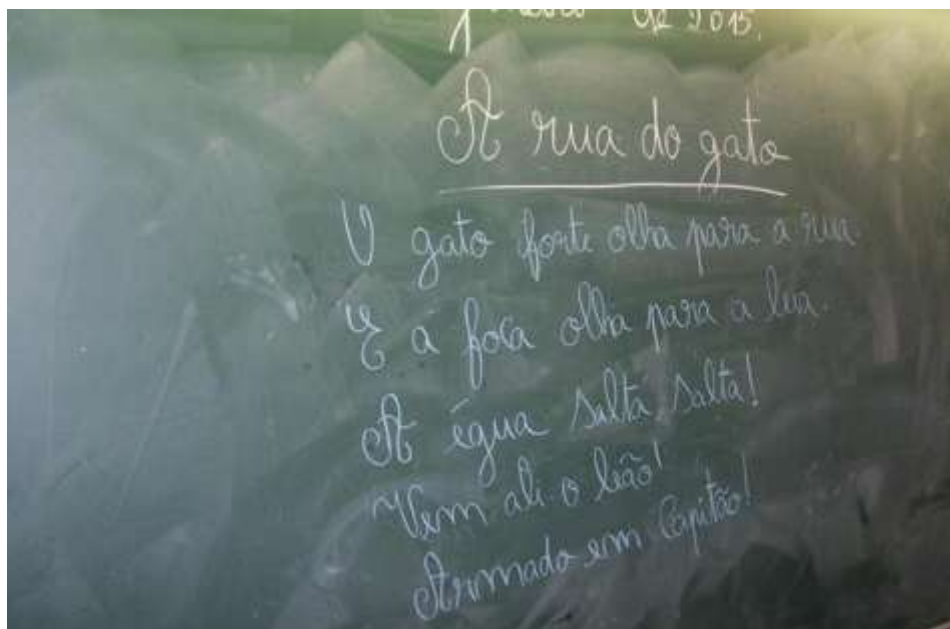 de 2015.
A rua do gato
O gato forte olha para a rua.
E a foca olha para a lua.
A égua salta, salta!
Vem ali o leão!
Armado em Capitão!